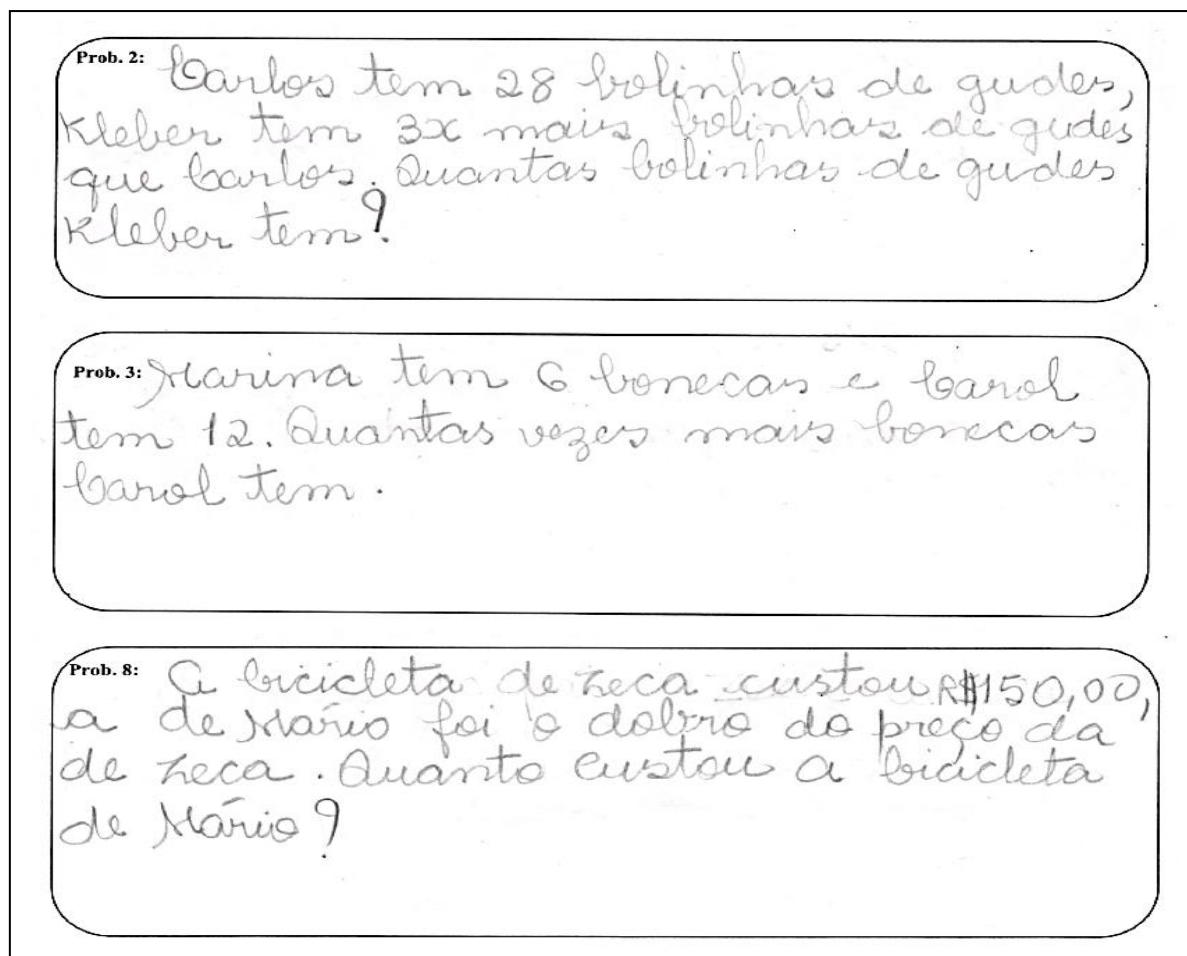 Prob. 2: Carlos tem 28 bolinhas de gudes,
Kleber tem 3x mais bolinhas de gudes
que Carlos. Quantas bolinhas de gudes
Kleber tem?
Prob. 3: Marina tem 6 bonecas e Carol
tem 12. Quantas vezes mais bonecas
Carol tem.
Prob. 8: A bicicleta de Zeca custou R$150,00,
a de Mário foi o dobro do preço da
de Zeca. Quanto custou a bicicleta
de Mário?